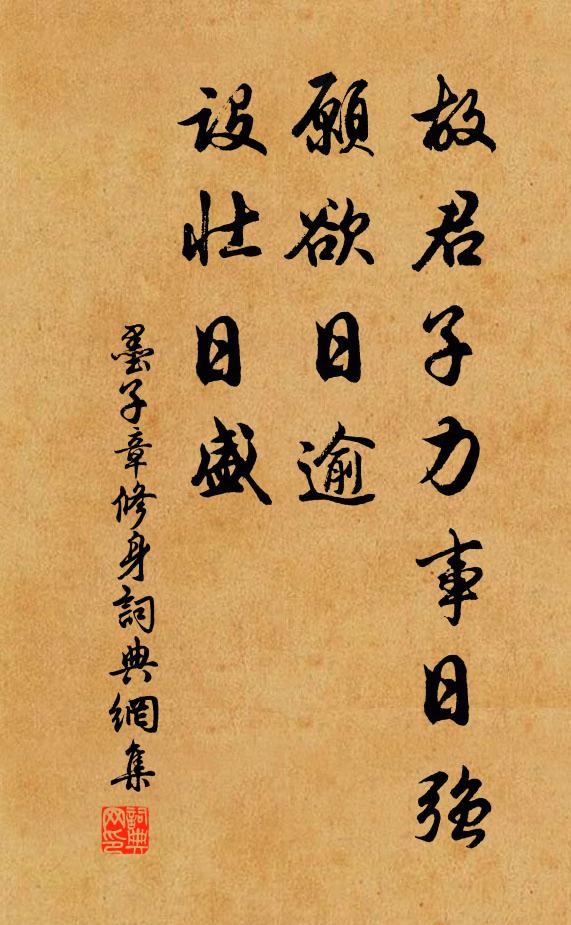 故君子力事日强
願欲日逾
設壯日盛
墨子章修身詞典網集
詞典
网印